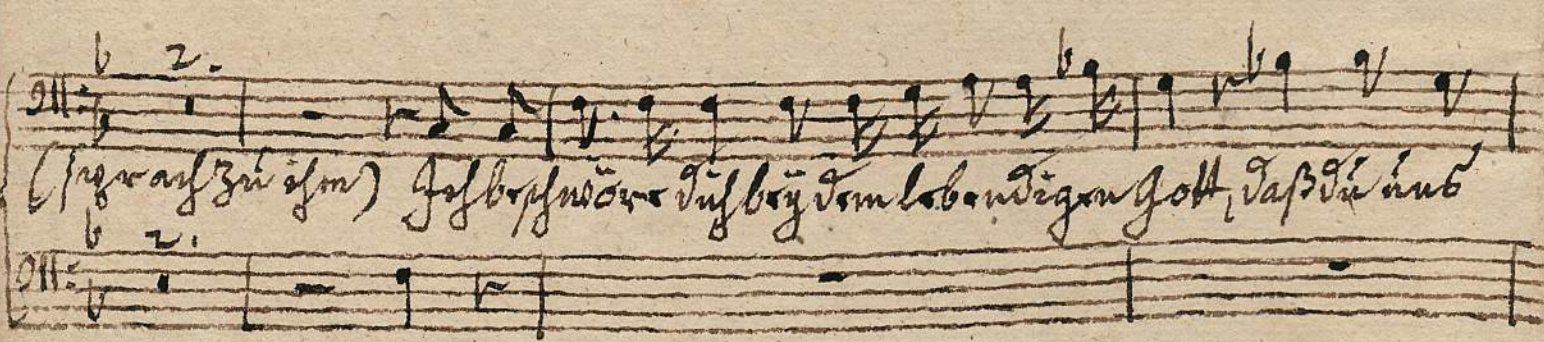 2.
(sprach zu ihm) Ich beschwöre dich bey dem lebendigen Gott, daß du uns
2.